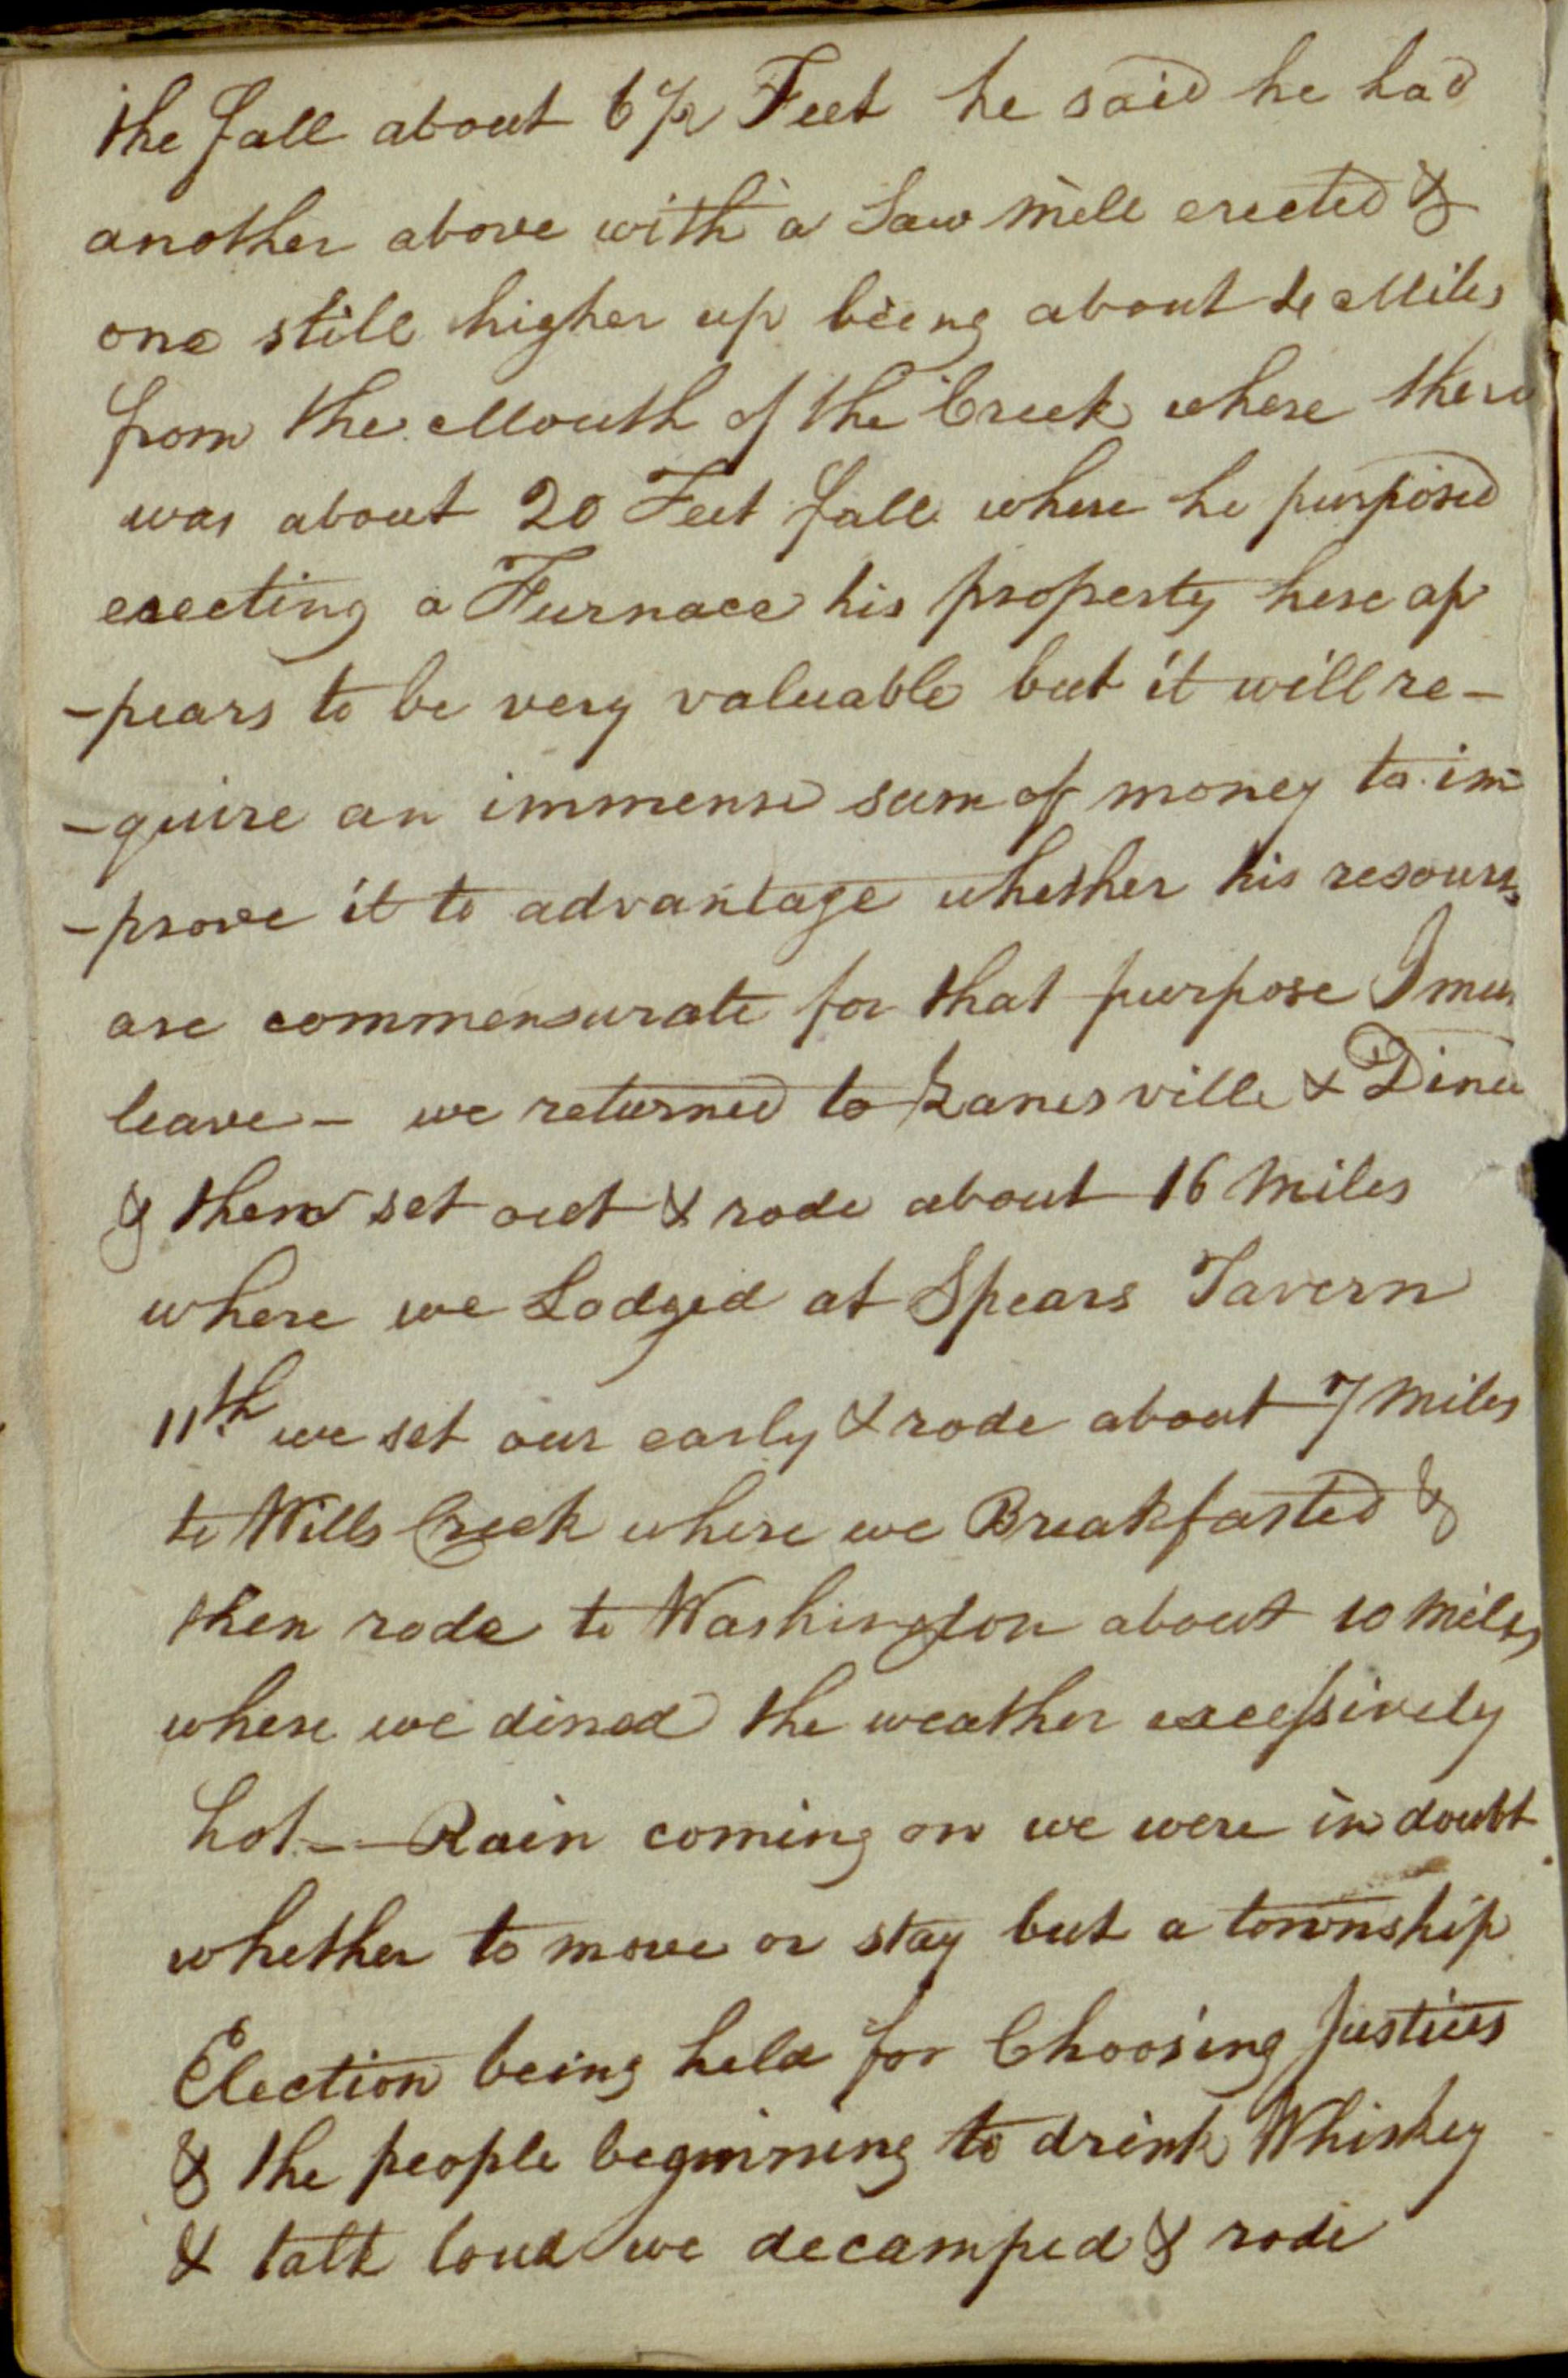 the fall about 6½ Feet he said he had
another above with a Saw mill erected &
one still higher up being about 4 Miles
from the Mouth of the Creek where there
was about 20 Feet fall where he purposed
erecting a Furnace his property here ap
-pears to be very valuable but it will re-
-quire an immense sum of money to im-
-prove it to advantage whether his resources
are commensurate for that purpose I mus
leave - we returned to Zanesville & Dined
& then set out & rode about 16 miles
where we Lodged at Spears Tavern
11th we set our early & rode about 7 miles
to Wills Creek where we Breakfasted &
then rode to Washington about 10 miles
where we dined the weather excessively
hot - Rain coming on we were in doubt
whether to move or stay but a township
Election being held for Choosing Justices
& the people beginning to drink Whiskey
& talk loud we decamped & rode